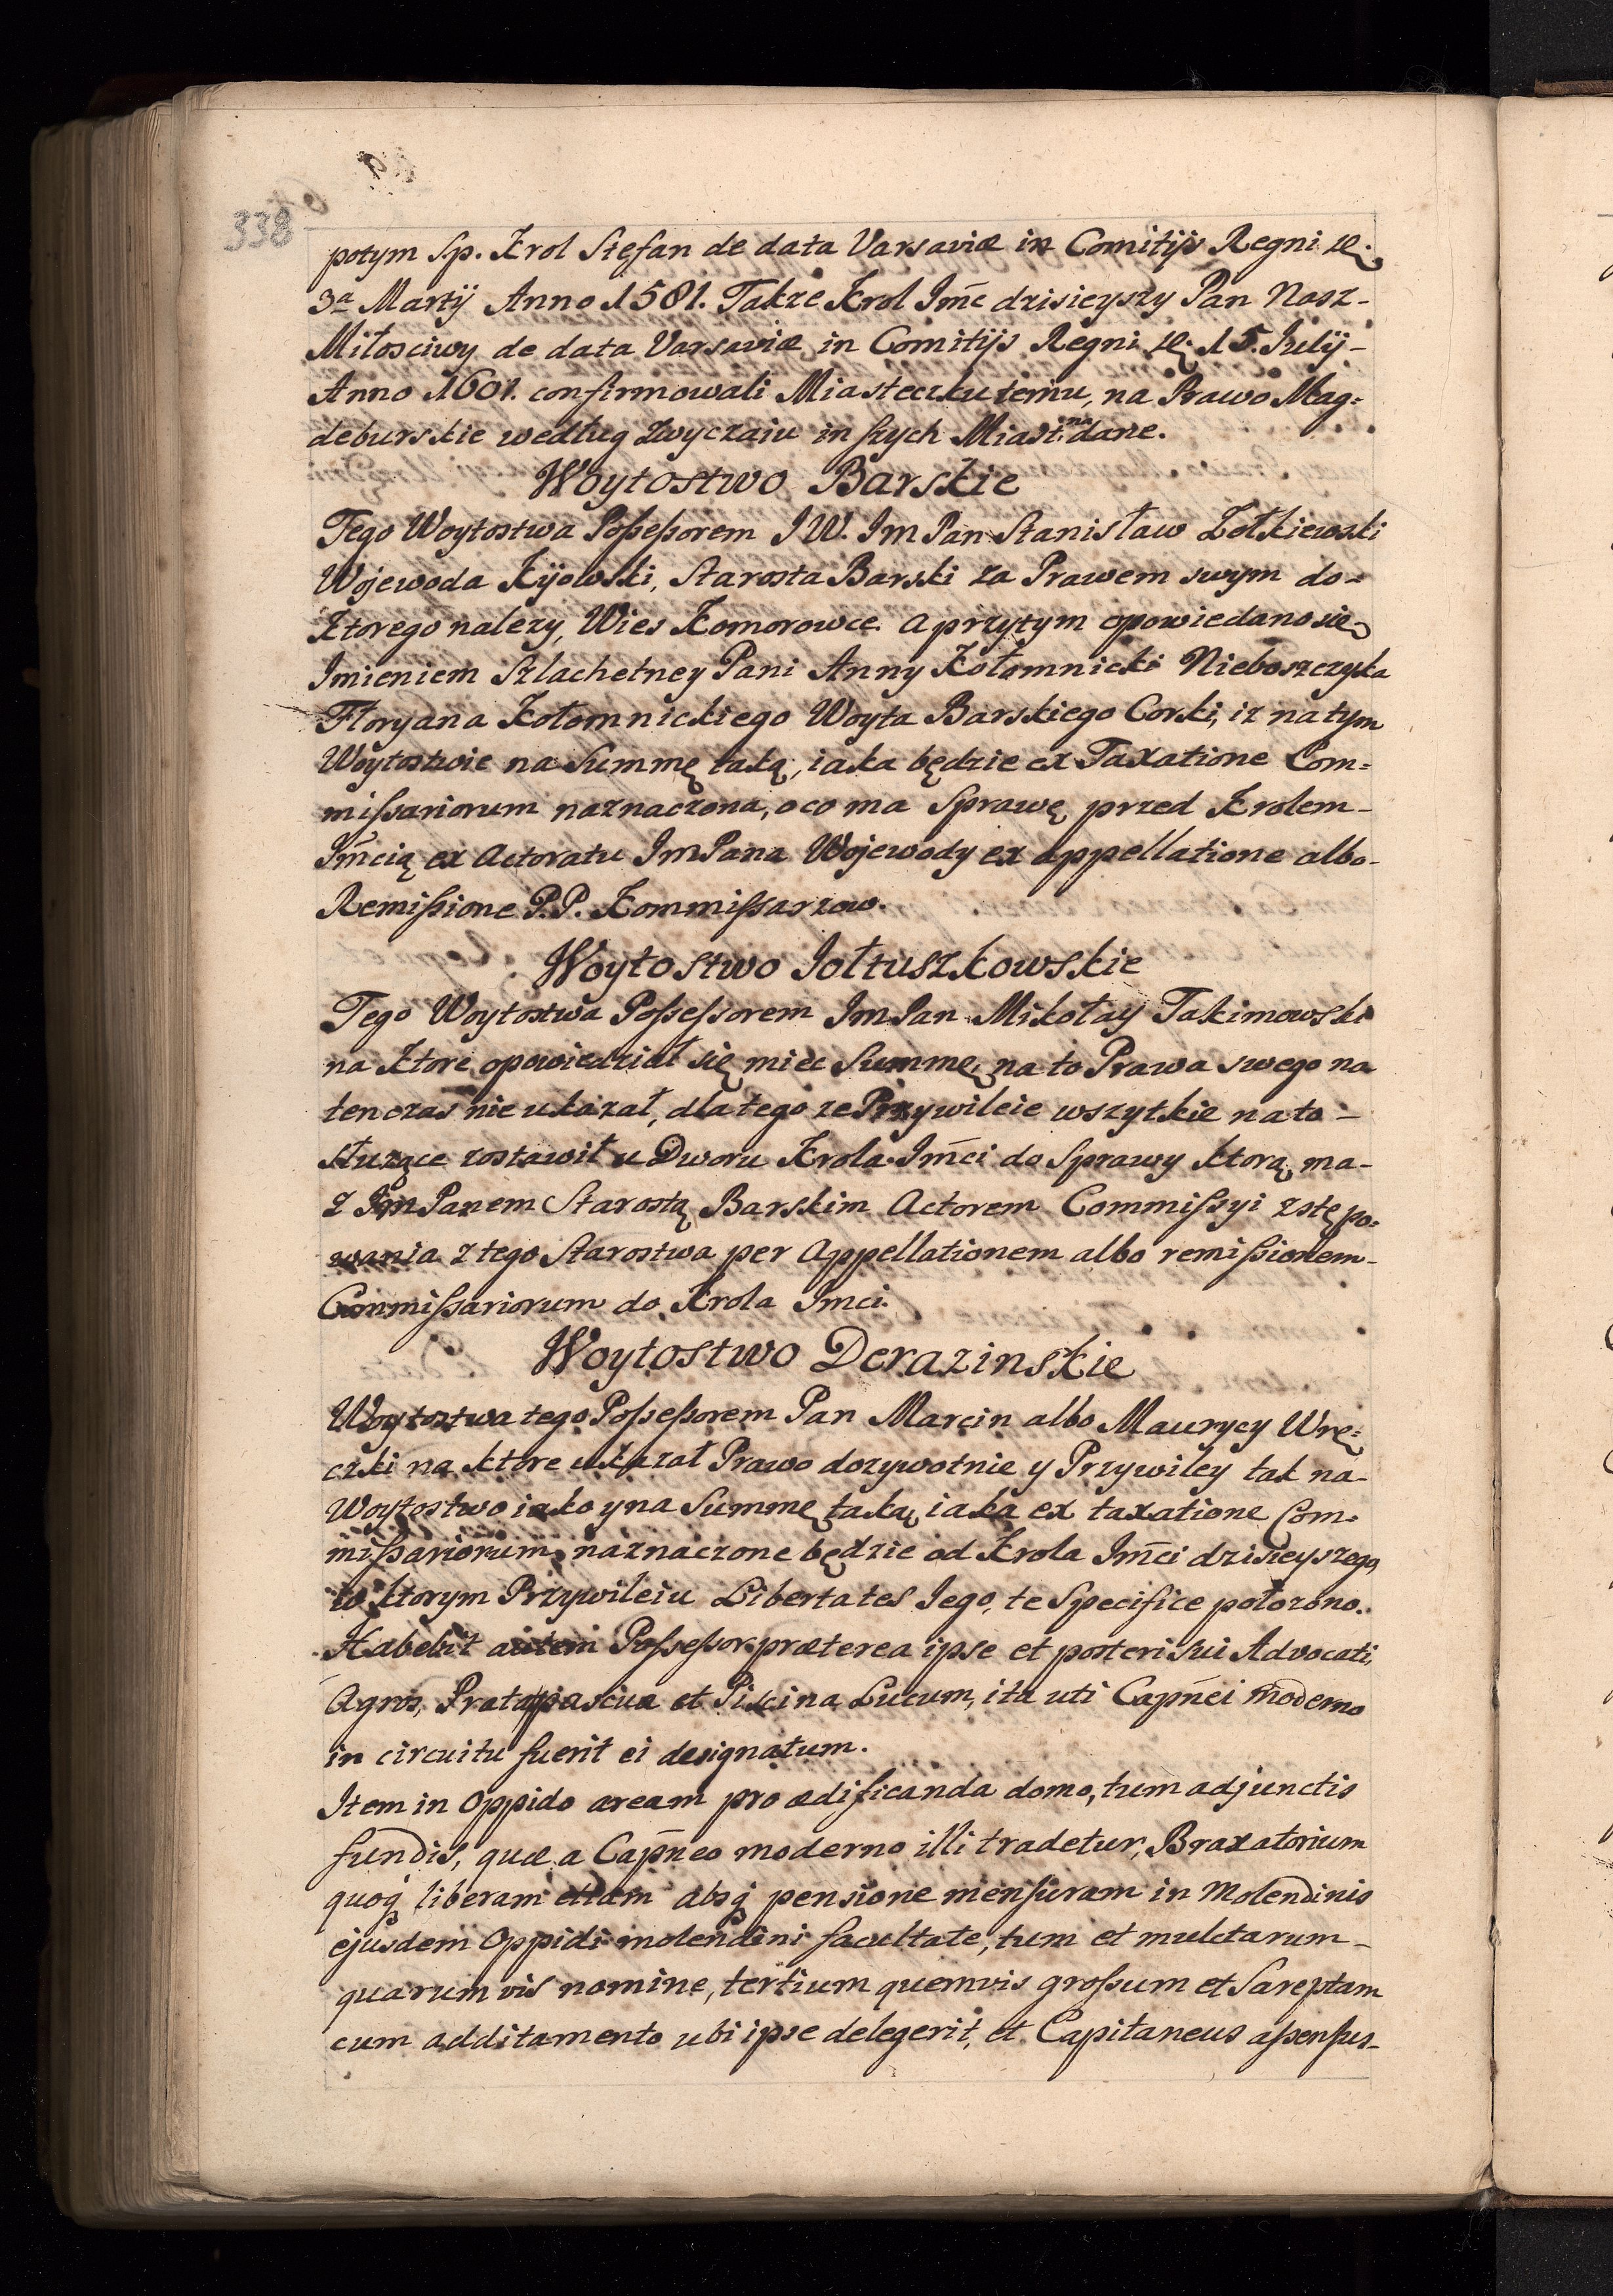 338
potym Sp. Krol Stefan de data Varsaviæ in Comitijs Regni
3a Martij Anno 1581. Także Krol Jmc dzisieyszy Pan Nasz-
Miłosciwy de data Varsaviæ in Comitijs Regni 15. Julij-
Anno 1601. confirmowali Miasteczku temu, na Prawo Mag=
deburskie według Zwyczaiu inszych Miast na dane.
Woytostwo Barskie
Tego Woytostwa Possessorem J W. Jm Pan Stanisław Zołkiewski
Wojewoda Kijowski, Starosta Barski za Prawem swym do=
Ktorego nalezy, Wies Komorowce. a przytym opowiedano się
Jmieniem Szlachetney Pani Anny Kołomnicki Nieboszczyka
Floryana Kołomnickiego Woyta Barskiego Corski, iz na tym
Woytostwie na Summę taką, iaka będzie ex Taxatione Com=
missariorum naznaczona, o co ma Sprawę przed Krolem-
Jmcią ex Actoratu JmPana Wojewody ex appellatione albo-
Remissione P.P. Kommissarzow.
Woytostwo Jołtuszkowskie
Tego Woytostwa Possessorem JmPan Mikołay Jakimowski
na Ktore opowiedział się miec Summę, na to Prawa swego na
ten czas nie ukazał, dla tego ze Przywileie wszytkie na to-
służące zostawił u Dworu Krola Jmci do Sprawy ktorą ma-
Z JmPanem Starostą Barskim Actorem Commissyi zstępo=
wania z tego Starostwa per Appellationem albo remissionem-
Commissariorum do Krola Jmci.
Woytostwo Derazinskie
Woytostwa tego Possessorem Pan Marcin albo Maurycy Wrę=
czki na ktore ukazał Prawo dozywotnie y Przywiley tak na-
Woytostwo iako y na Summę taką, iaka ex taxatione Com=
missariorum naznaczone będzie od Krola Jmci dzisieyszego,
w ktorym Przywileiu Libertates Jego, te Specifice połozono.
Habebit autem Possessor præterea ipse et posteri sui Advocati,
Agros, Prata, pascua et Piscina Lucum, ita uti Capnei moderno
in circuitu fuerit ei designatum.
Item in Oppido aream pro ædificanda domo, tum adjunctis
fundis, quæ a Capneo moderno illi tradetur, Braxatorium
quoq liberam etiam absq pensione mensuram in Molendinis
ejusdem Oppidi molendini facultate, tum et mulctarum-
quarumvis nomine, tertium quemvis grossum et Sareptam
cum additamento ubi ipse delegerit, et Capitaneus assensus-